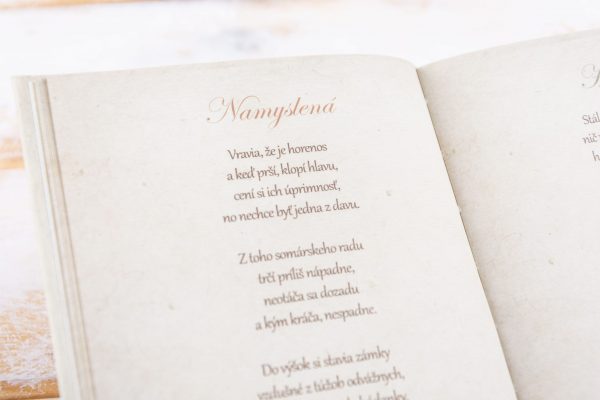 Namyslená
Vravia, že je horenos
a keď prší, klopí hlavu,
cení si ich úprimnosť,
no nechce byť jedna z davu.
Z toho somárskeho radu
trčí príliš nápadne,
neotáča sa dozadu
a kým kráča, nespadne.
Do výšok si stavia zámky
vzdušné z túžob odvážnych,
Stál
nič